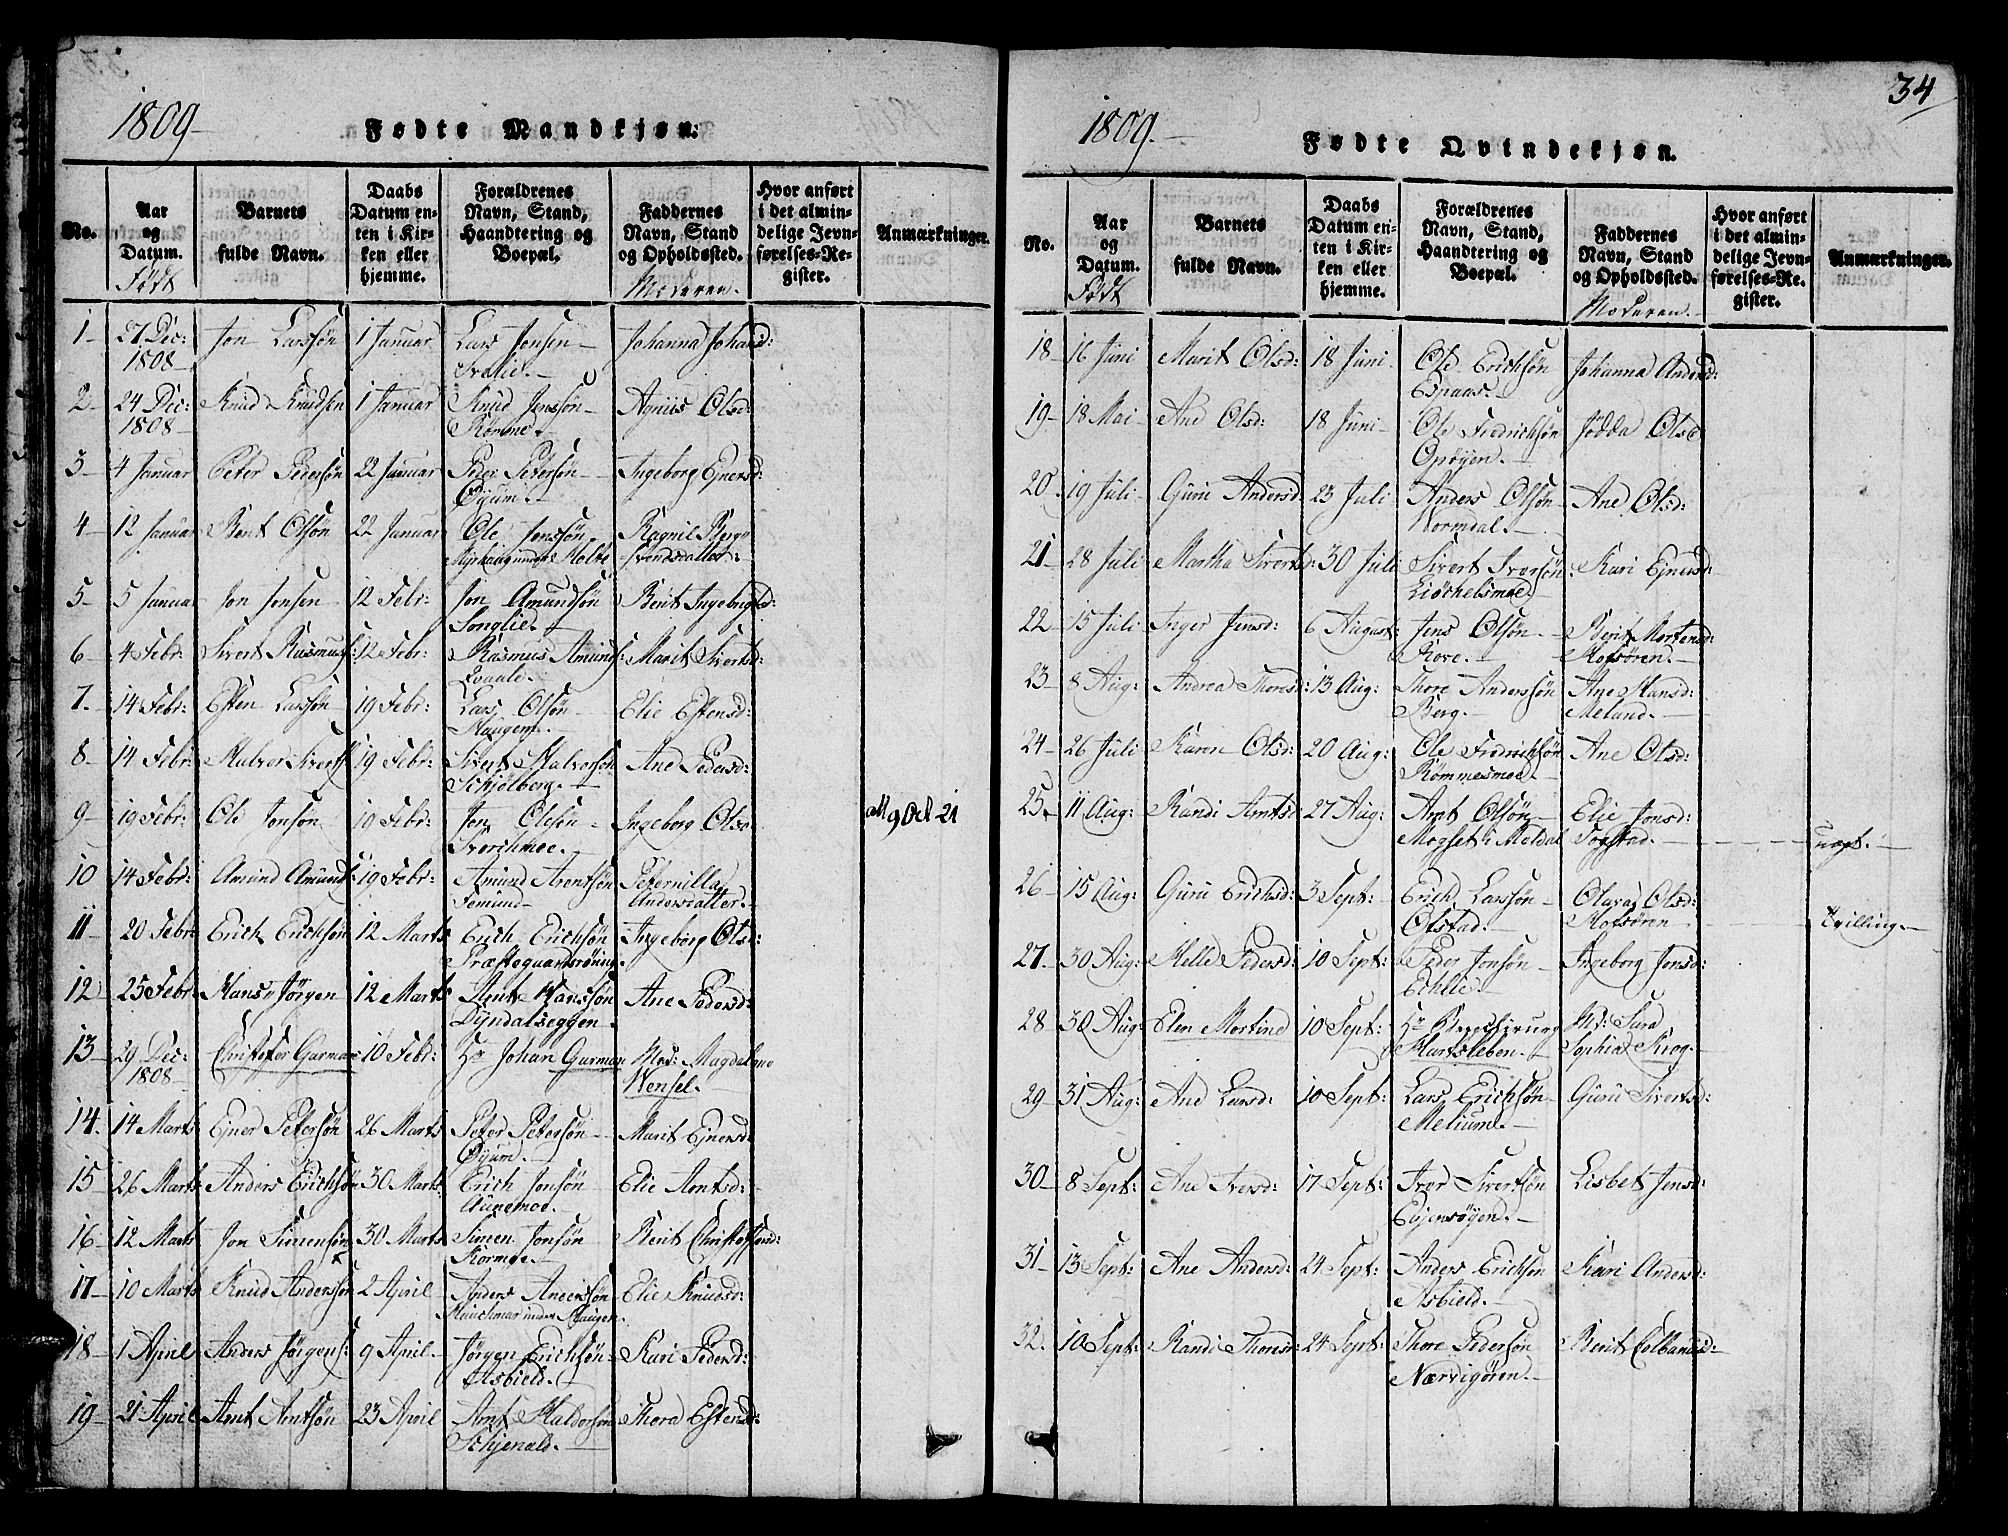 1809
Fødte Mandkjøn.
No.
Aar og Datum.
Født
Barnets fulde Navn.
Daabs Datum enten i Kirken eller hjemme.
Forældrenes Navn, Stand, Haandtering og Boepæl.
Faddernes Navn, Stand og Opholdssted.
Moderen.
Hvor anført i det almindelige Jevnførelses-Register.
Anmærkninger.
1 27 Dec: Jon Larssøn 1 Januar Lars Jonsen Johanna Johansd:
1808
2 24 Dec: Knud Knudsen 1 Januar Knud Jenssøn Agnis Olsd:
1808 Rømme.
3 4 Januar Peter Pedersøn 22 Januar Peder Petersøn Ingeborg Ejnersd:
Øyum.
4 12 Januar Bent Olsøn 22 Januar Ole Jonssøn Ragnil Berg
Svendsdatter:
5 5 Januar Jon Jonsen 12 Febr: Jon Amundsøn Berit Ingebrigtsd:
Songlie.
6 4 Febr: Sivert Rasmuss: 12 Febr: Rasmus Amunds: Marit Sivertsd:
Qvaale.
7. 14 Febr: Esten Larssøn 19 Febr: Lars Olsøn Elie Estensd:
Haugen.
8 14 Febr: Halvor Siverts: 19 Febr: Sivert Halvorsøn Ane Pedersd:
Schjølberg.
9 19 Febr: Ole Jonsøn 19 Febr: Jon Olesøn Ingeborg Olsd: 9 Oct 21
Storchmoe.
10 14 Febr: Amund Amunds: 19 Febr: Amund Arentsøn Pternilla
Andersdatter.
11 20 Febr: Erich Erichsøn 12 Marts Erich Erichsøn Ingeborg Olsd:
Præstegaardsrøning.
12 25 Febr: Hans Jørgen 12 Marts Arnt Hanssøn Ane Pedersd:
Dyndalseggen.
13 29 Dec: Christofer Garman 10 Febr: Hr Johan Garman Mad: Magdalena
1808 Wensel.
14. 14 Marts Ejner Petersøn 26 Marts Peter Petersøn Marit Ejnersd:
Øyum.
15 26 Marts Anders Erichsøn 30 Marts Erich Jonsøn Elie Arntsd:
Aunemoe.
16 12 Marts Jon Simensøn 30 Marts Simen Jonsøn Berit Christoffersd:
17 10 Marts Knud Anderssøn 2 April Anders Anderssøn Elie Knudsd:
under Haugen.
18 1 April Anders Jørgens: 9 April. Jørgen Erichsøn Kari Pedersd:
Asbield.
19 21 April Arnt Arntsøn 23 April Arnt Haldorsøn Thora Estensd:
Schjenald.
34
1809.
Fødte Qvindekjøn.
No.
Aar og Datum.
Født
Barnets fulde Navn.
Daabs Datum enten i Kirken eller hjemme.
Forældrenes Navn, Stand, Haandtering og Boepæl.
Faddernes Navn, Stand og Opholdssted.
Moderen.
Hvor anført i det almindelige Jevnførelses-Register.
Anmærkninger.
18 16 Juni Marit Olsd: 18 Juni Ole Erichsøn Johanna Andersd:
Espaas.
19 18 Mai Ane Olsd: 18 Juni Ole Fredrichsøn Jødda Olsd
Opøyen.
20. 19 Juli Guru Andersd. 23 Juli Anders Olsøn Ane Olsd:
Wormdal.
21 28 Juli Martha Sivertsd: 30 Juli Sivert Iversøn Kari Ejnersd:
Liøchelsmoe.
22 15 Juli Inger Jensd: 6 August: Jens Olsøn Berit Mortensd:
Kove. Hofsøren.
23 8 Aug: Andrea Thoresd: 13 Aug: Thore Anderssøn Ane Hansd:
Berg. Meland.
24 26 Juli Karen Olsd: 20 Aug: Ole Fredrichsøn Ane Olsd:
Rømmesmoe.
25. 11 Aug: Randi Arntsd 27 Aug: Arnt Olsøn Elie Jonsd:
Mogset i Meldal Fogstad. uægt.
26 15 Aug: Guru Erichsd: 3 Sept: Erich Larssøn Olava Olsd:
Olstad. Hofsøren Tvilling.
27. 30 Aug: Melle Pedersd: 10 Sept: Peder Jonsøn Ingeborg Jonsd:
Echlie.
28 30 Aug: Elen Martine 10 Sept: Hr Md: Sara
Hartsleben. Sophia Krog.
29 31 Aug: Ane Larsd: 10 Sept: Lars Erichsøn Guru Sivertsd:
Melium.
30 8 Sept: Ane Iversd: 17 Sept: Iver Sivertsøn Lisbet Jensd:
Evjensøyen.
31 13 Sept: Ane Andersd: 24 Sept: Anders Erichsøn Kari Andersd:
Asbield.
32. 10 Sept: Randi Thoresd: 24 Sept: Thore Pedersøn Berit Colbansd:
Nærvigøren.